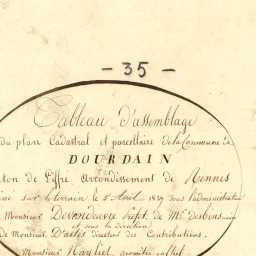 - 35 -
Tableau d'assemblage
du plan Cadastral et parcellaire de la Commune de
DOURDAIN
ton de Liffré Arrondissement de Rennes
sur le terrain le 5 Avril 1829 sous l'administration
Monsieur Devendeuvre Préfet de Mr. Desbois
et sous la direction
de Monsieur D'astis directeur des Contributions.
Monsieur